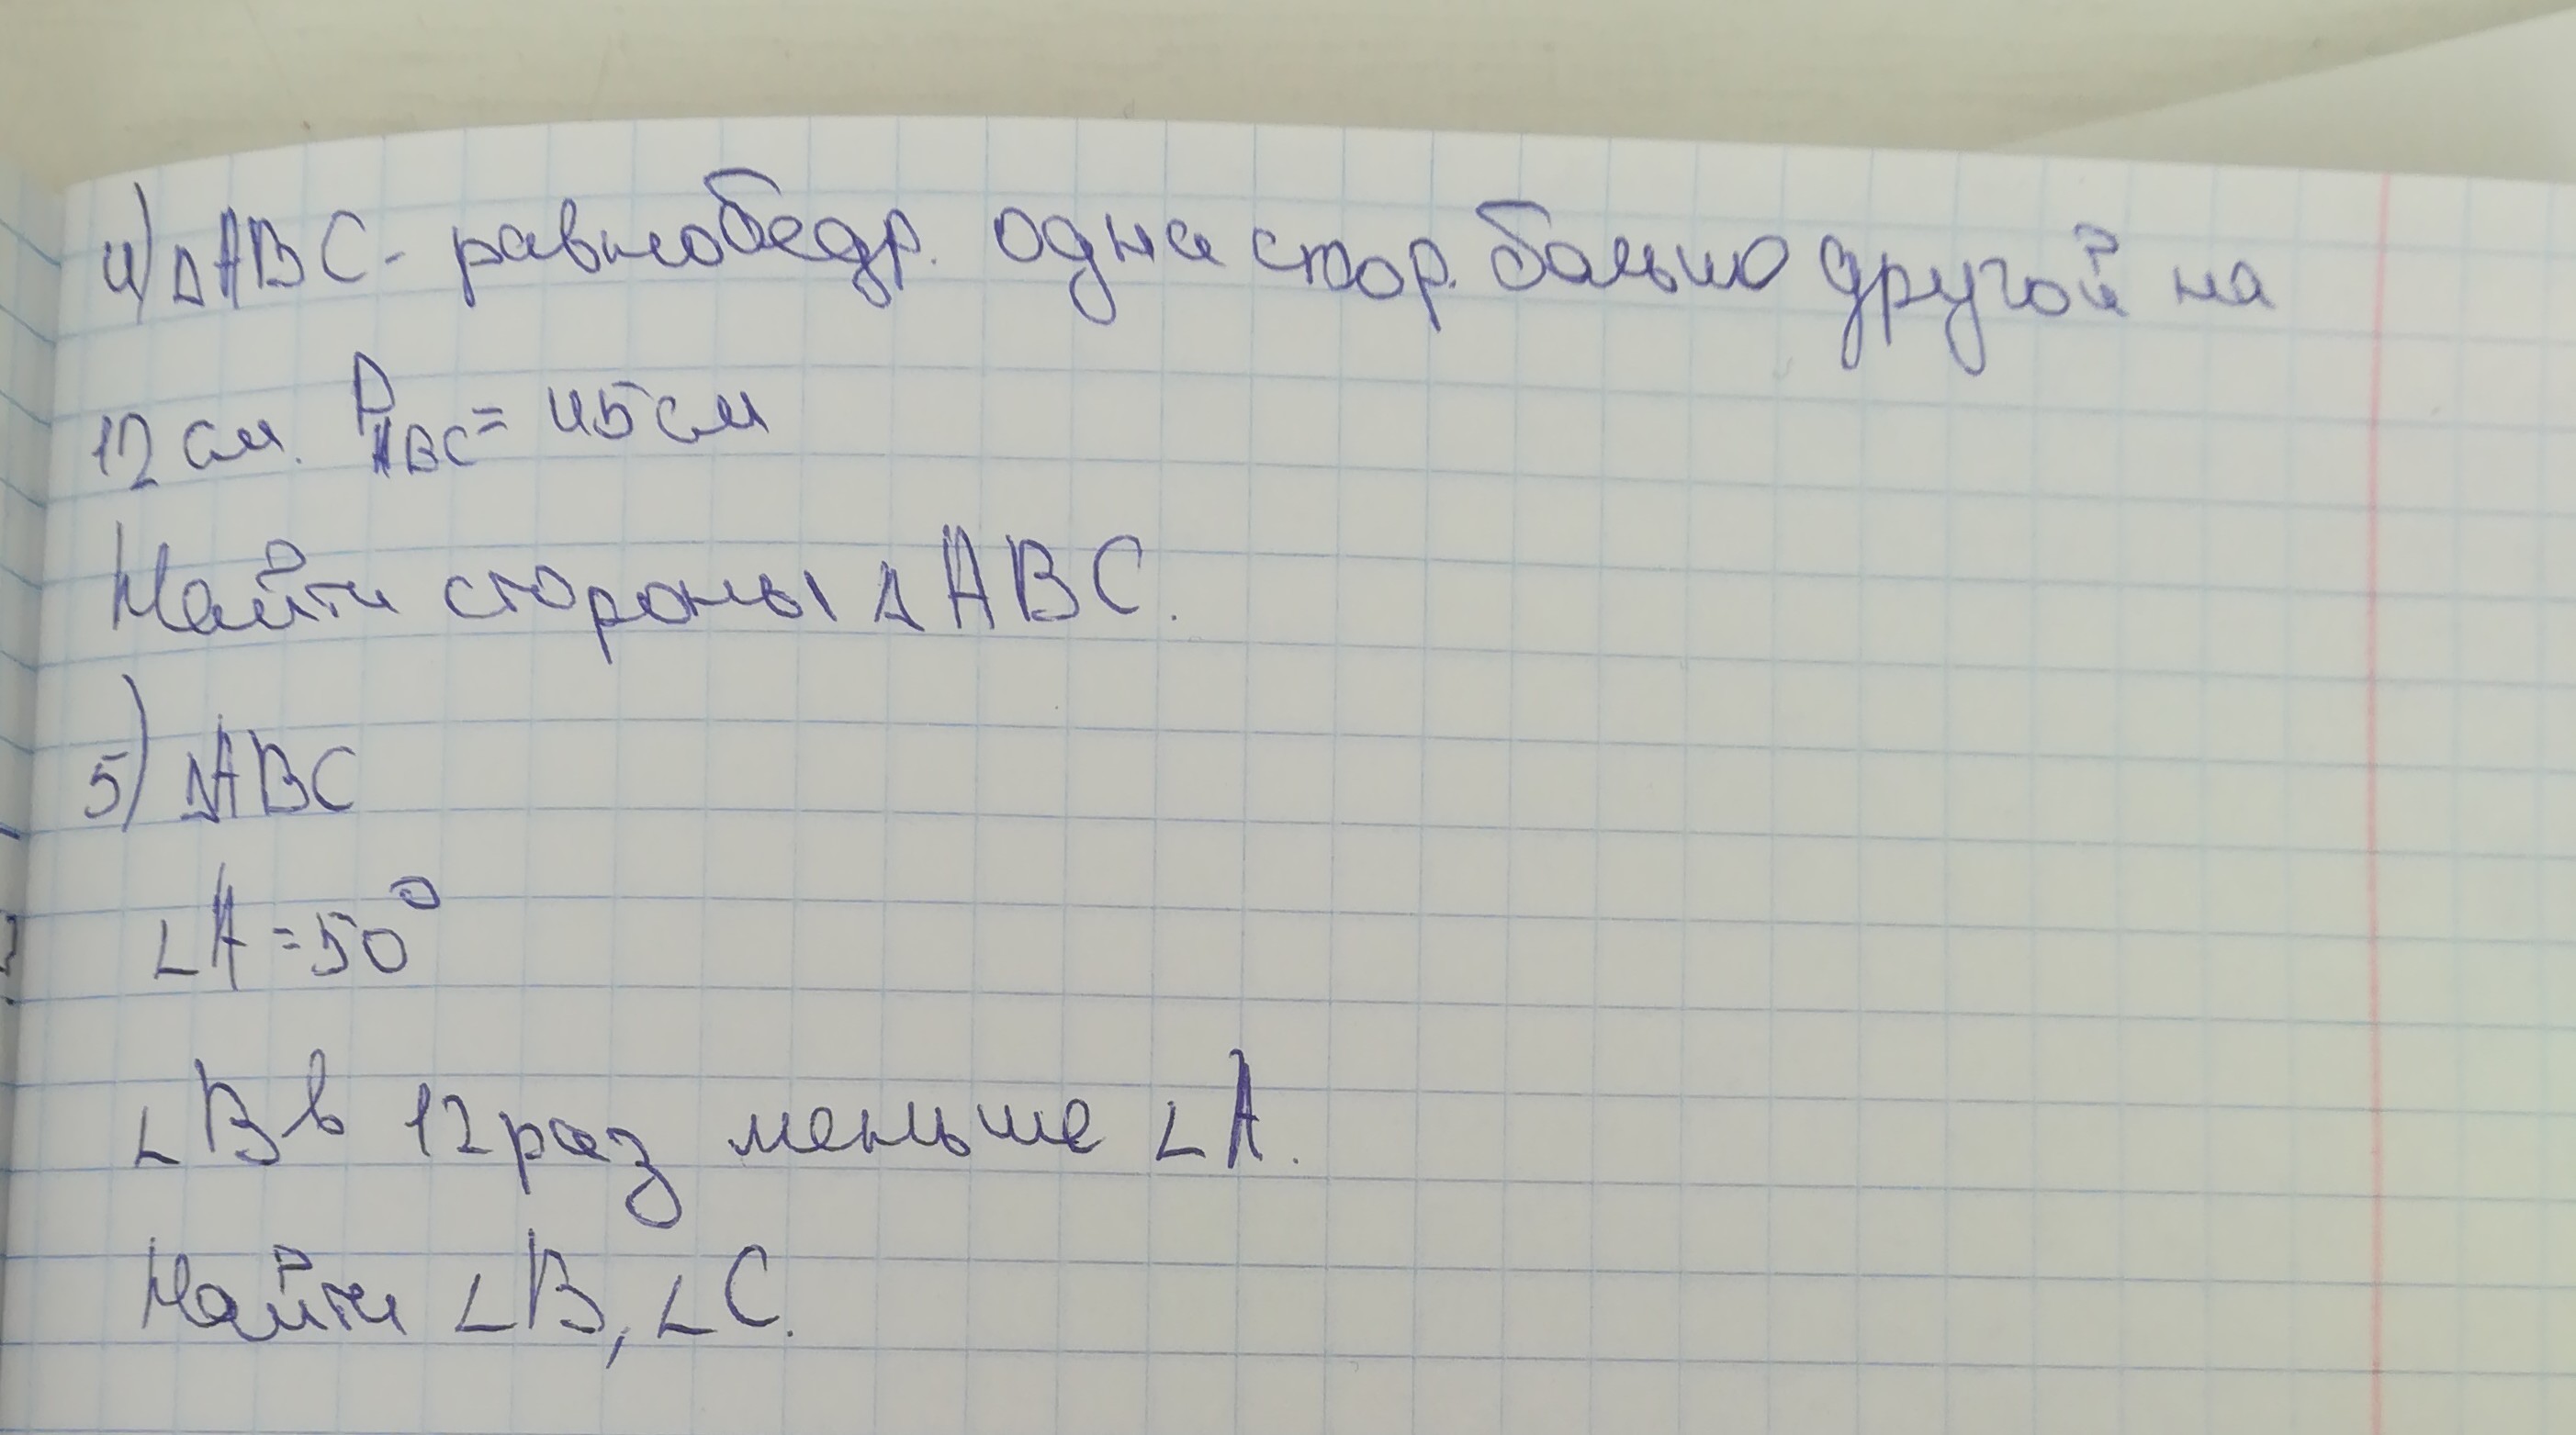 4) ΔABC - равнобедр. одна стор. больше другой на
12 см. P ABC = 45 см
Найти стороны Δ ABC.
5) ΔABC
∠A = 50°
∠B в 12 раз меньше ∠A.
Найти ∠B, ∠C.